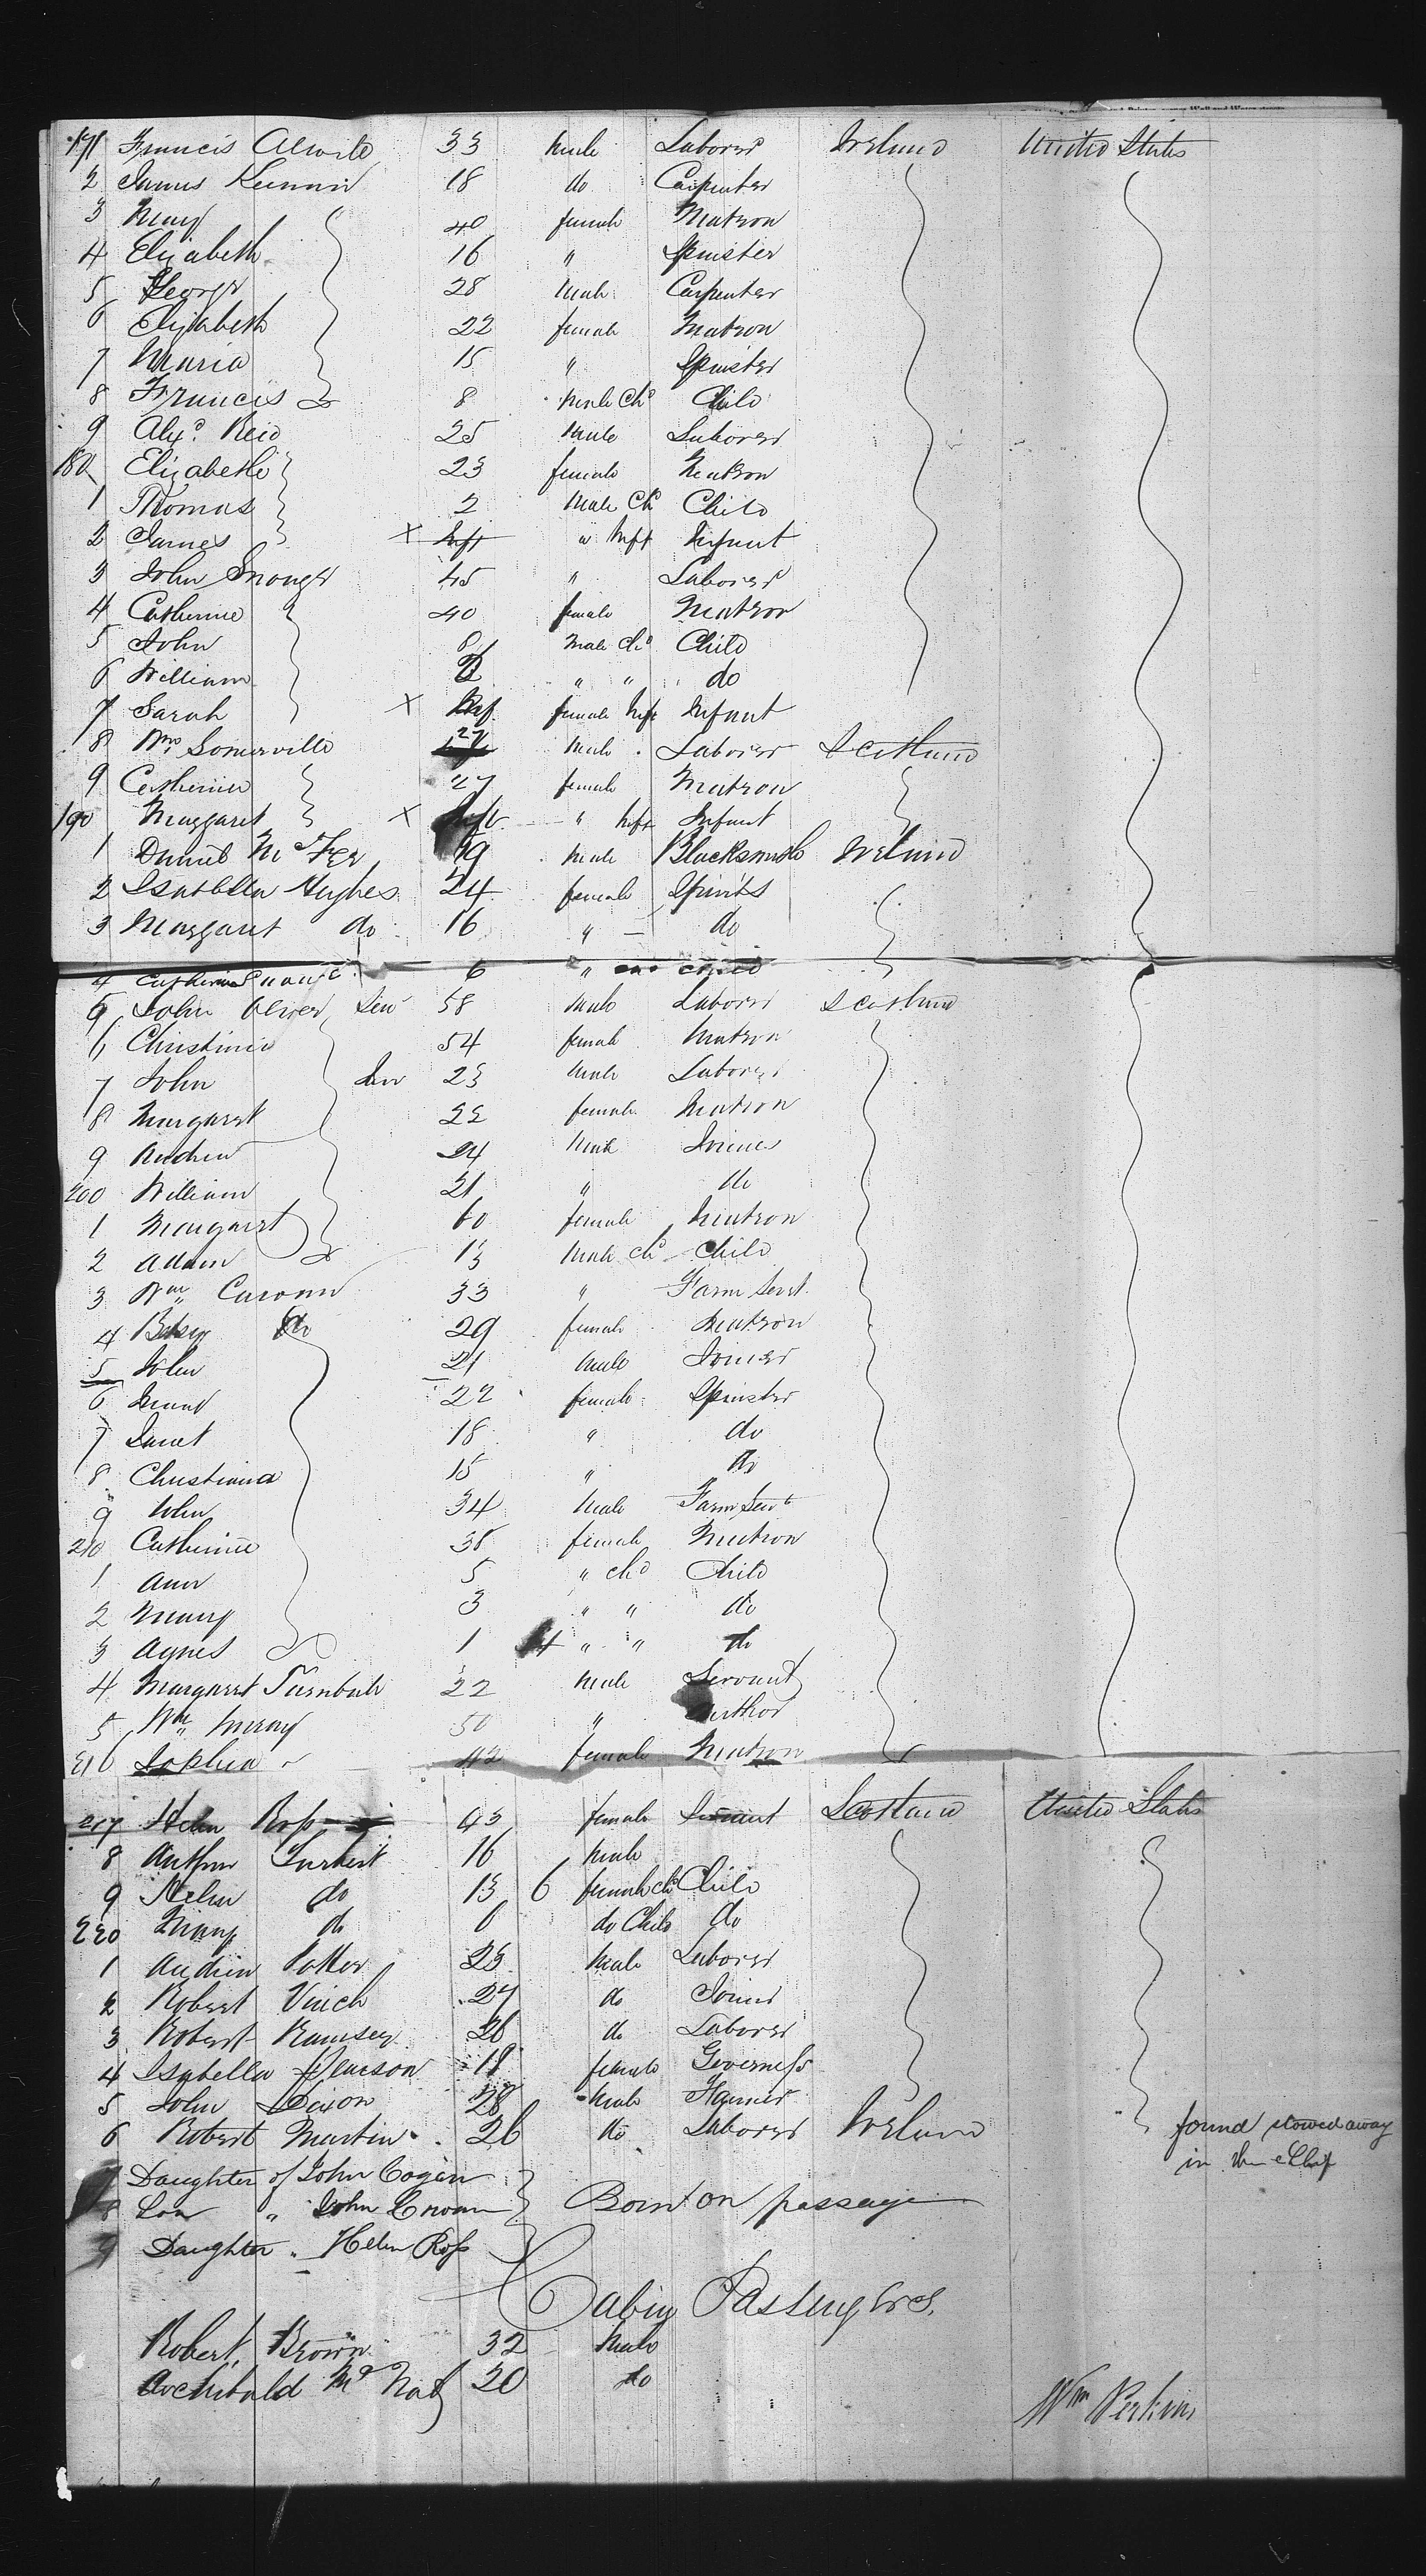 171 Francis 33 Male Laborer Ireland United States
2 James 18 do Carpenter
3 Mary 40 female Matron
4 Elizabeth 16 " Spinster
5 George 28 Male Carpenter
6 Elizabeth 22 female Matron
7 Maria 15 " Spinster
8 Francis 8 Male Chd Child
9 Alexr. Reid 25 Male Laborer
180 Elizabeth 23 female Matron
1 Thomas 2 Male Ch Child
2 James X Inft " Inft Infant
3 John 45 " Laborer
4 Catherine 40 female Matron
5 John 8 Male Chd Child
6 William " " do
7 Sarah X Inf. female Inft Infant
8 Wm Somerville 27 Male Laborer Scotland
9 Catherine 27 female Matron
190 Margaret X Inft " Inft Infant
1 Daniel Mc 19 Male Blacksmith Ireland
2 Isabella Hughes 24 female Spinster
3 Margaret do 16 " do
4 Catherine 6 " Child
5 John Oliver Sen 58 Male Laborer Scotland
6 Christina 54 female Matron
7 John Jnr 23 Male Laborer
8 Margaret 22 female Matron
9 Andrew 24 Male Joiner
200 William 21 " do
1 Margaret 60 female Matron
2 Adam 13 Male Chd Child
3 Wm 33 " Farm Servt.
4 Betsy do 29 female Matron
5 John 21 Male Joiner
6 22 female Spinster
7 Janet 18 " do
8 Christiana 15 " do
9 John 34 Male Farm Servt
210 Catherine 38 female Matron
1 Ann 5 " Chd Child
2 Mary 3 " " do
3 Agnes 1 " " do
4 Margaret Turnbull 22 Male Servant
5 Wm Murray 50 " Author
216 Sophia 42 female Matron
217 Helen Ross 43 female Servant Scotland United States
8 Arthur 16 Male
9 Helen do 13 6 female chd Child
220 Mary do 6 do Child do
1 Andrew Potter 23 Male Laborer
2 Robert Veitch 27 do Joiner
3 Robert Ramsey 26 do Laborer
4 Isabella Pearson 19 female Governess
5 John Dixon 28 Male Farmer
6 Robert Martin 26 do Laborer Ireland found stowed away
in the Ship
7 Daughter of John Cogan
8 Son " John Born on passage
9 Daughter " Helen Ross
Cabin Passengers.
Robert Brown 32 Male
Archibald Mc Nab 20 do
Wm Perkins